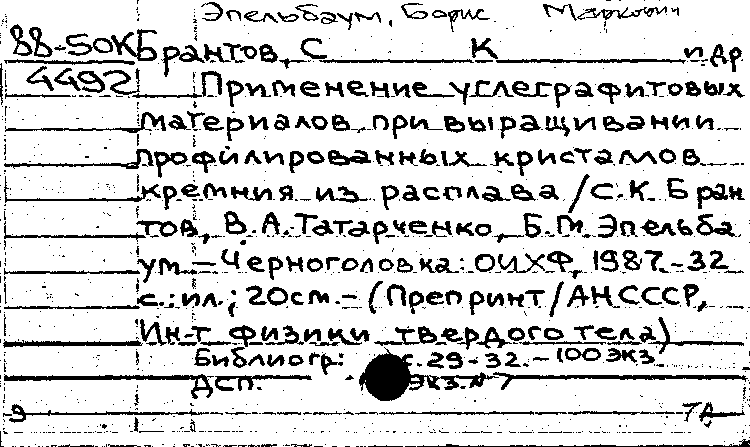 Эпельбаум, Борис Маркович
88-50К Брантов, С К и др
4492 Применение углеграфитовых
материалов при выращивании
профилированных кристаллов
кремния из расплава / С.К. Бран
тов, В.А. Татарченко, Б.М. Эпельба
ум. – Черноголовка: ОИХФ, 1987. – 32
с.: ил.; 20см. – (Препринт / АН СССР,
Ин-т физики твердого тела)
Библиогр: с. 29-32. – 100 экз.
ДСП. экз. № 7
9